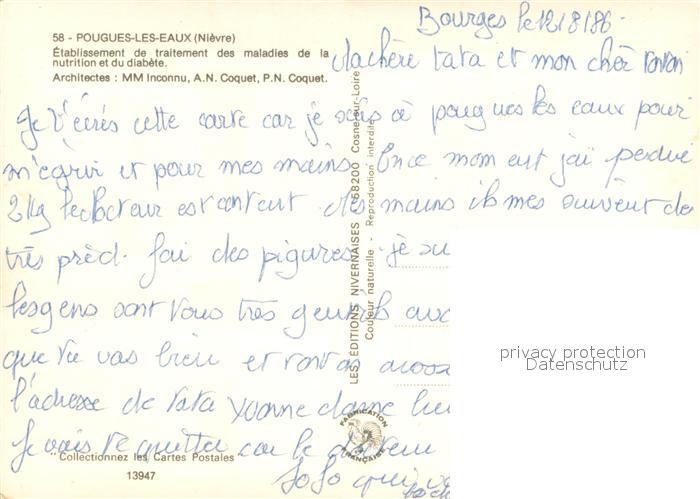 58 - POUGUES-LES-EAUX (Nièvre)
Établissement de traitement des maladies de la
nutrition et du diabète.
Architectes : MM Inconnu, A.N. Coquet, P.N. Coquet.
Bourges le 12/8/86.
Ma chère tata et mon chèr tonton
Je t'écris cette carte car je suis à pougues les eaux pour
m'égrir et pour mes mains. En ce moment j'ai perdue
2 Kg le docteur est content. des mains ils mes suivent de
très prèd. J'ai des piqures. je
les gens sont tous très gentils
que tu vas bien et tonton aussi
l'adresse de tata Yvonne donne
Je vais te quitter car le
JoJo qui
LES ÉDITIONS NIVERNAISES 58200 Cosne-sur-Loire
Couleur naturelle - Reproduction interdite
FABRICATION FRANÇAISE
"Collectionnez les Cartes Postales"
13947
privacy protection
Datenschutz